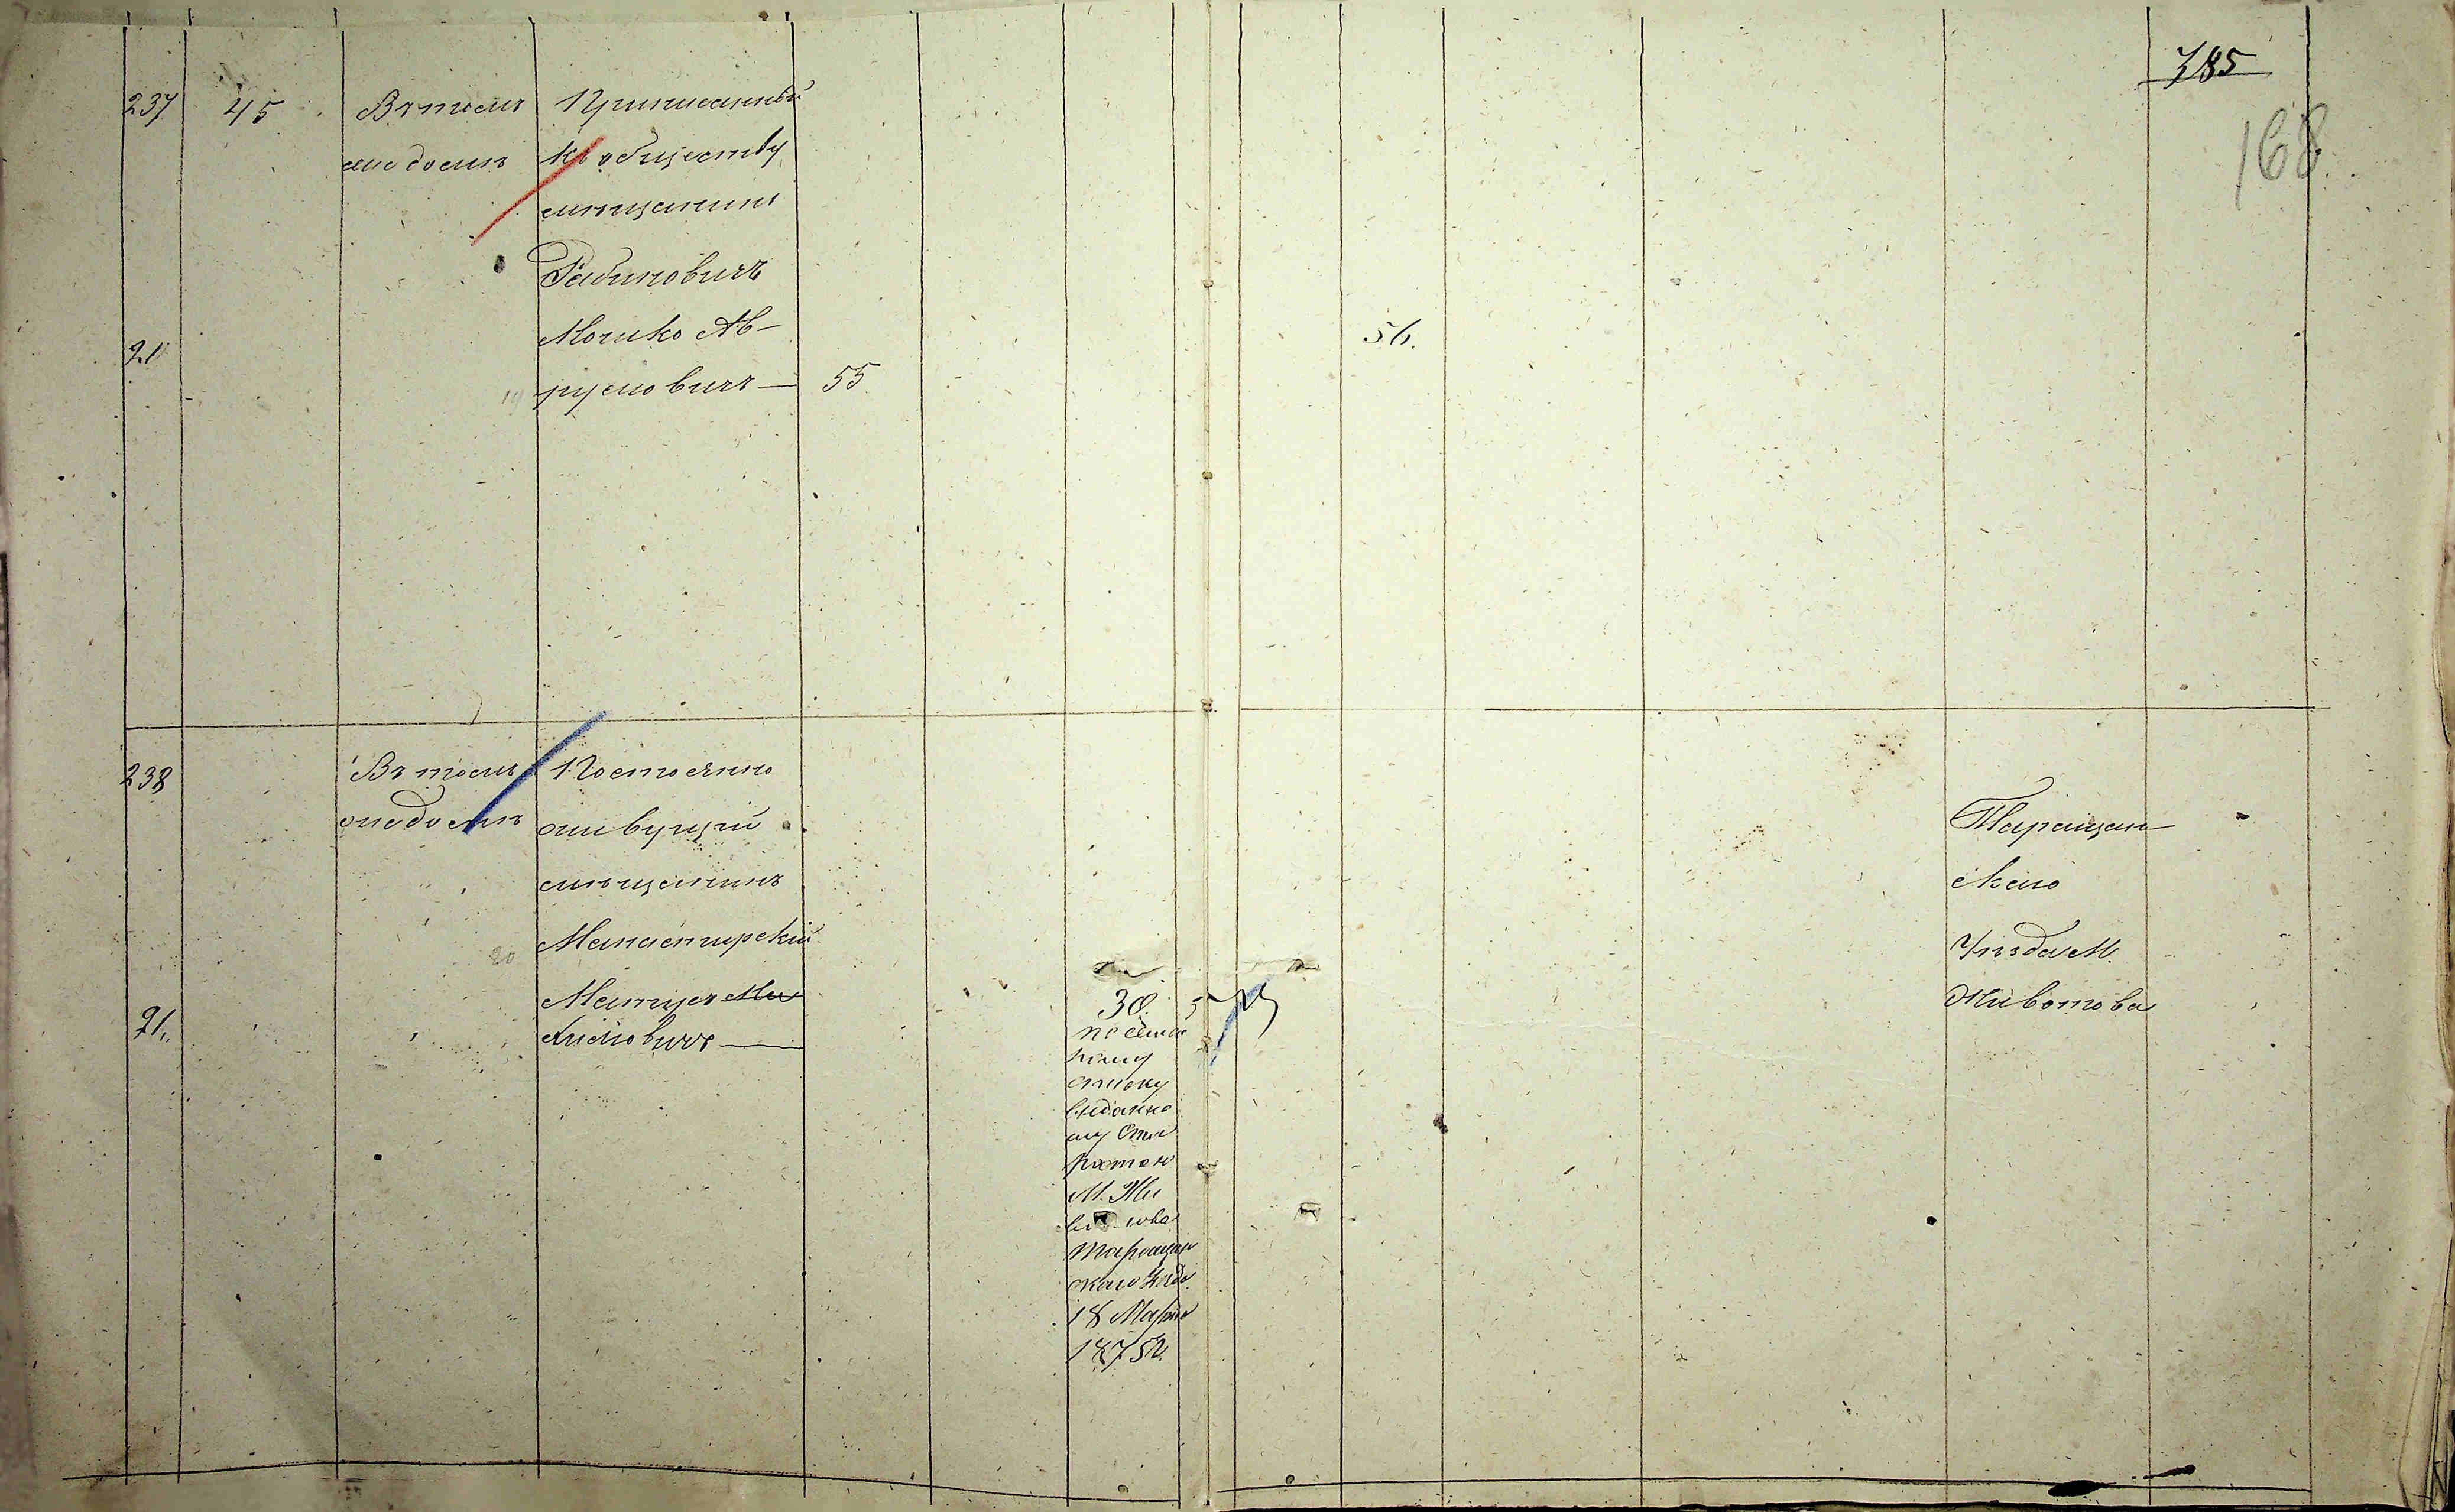 385
168
237
45
Въ томъ
же домѣ
Приписанный
къ обществу
мѣщанинъ
Рабиновичъ
Мошко Ав-
румовичъ —
55
56.
21
19
238
Въ томъ
же домѣ
Постоянно
живущій
мѣщанинъ
Манастирскій
20
Матус
химовичъ —
21.
30.
по семей
ному
списку
виданно
му Ста
ростою
М. Жи
вотова
Таращан
скаго уѣзда
18 Марта
1875 г.
Таращан-
скаго
Уѣзда М.
Животова